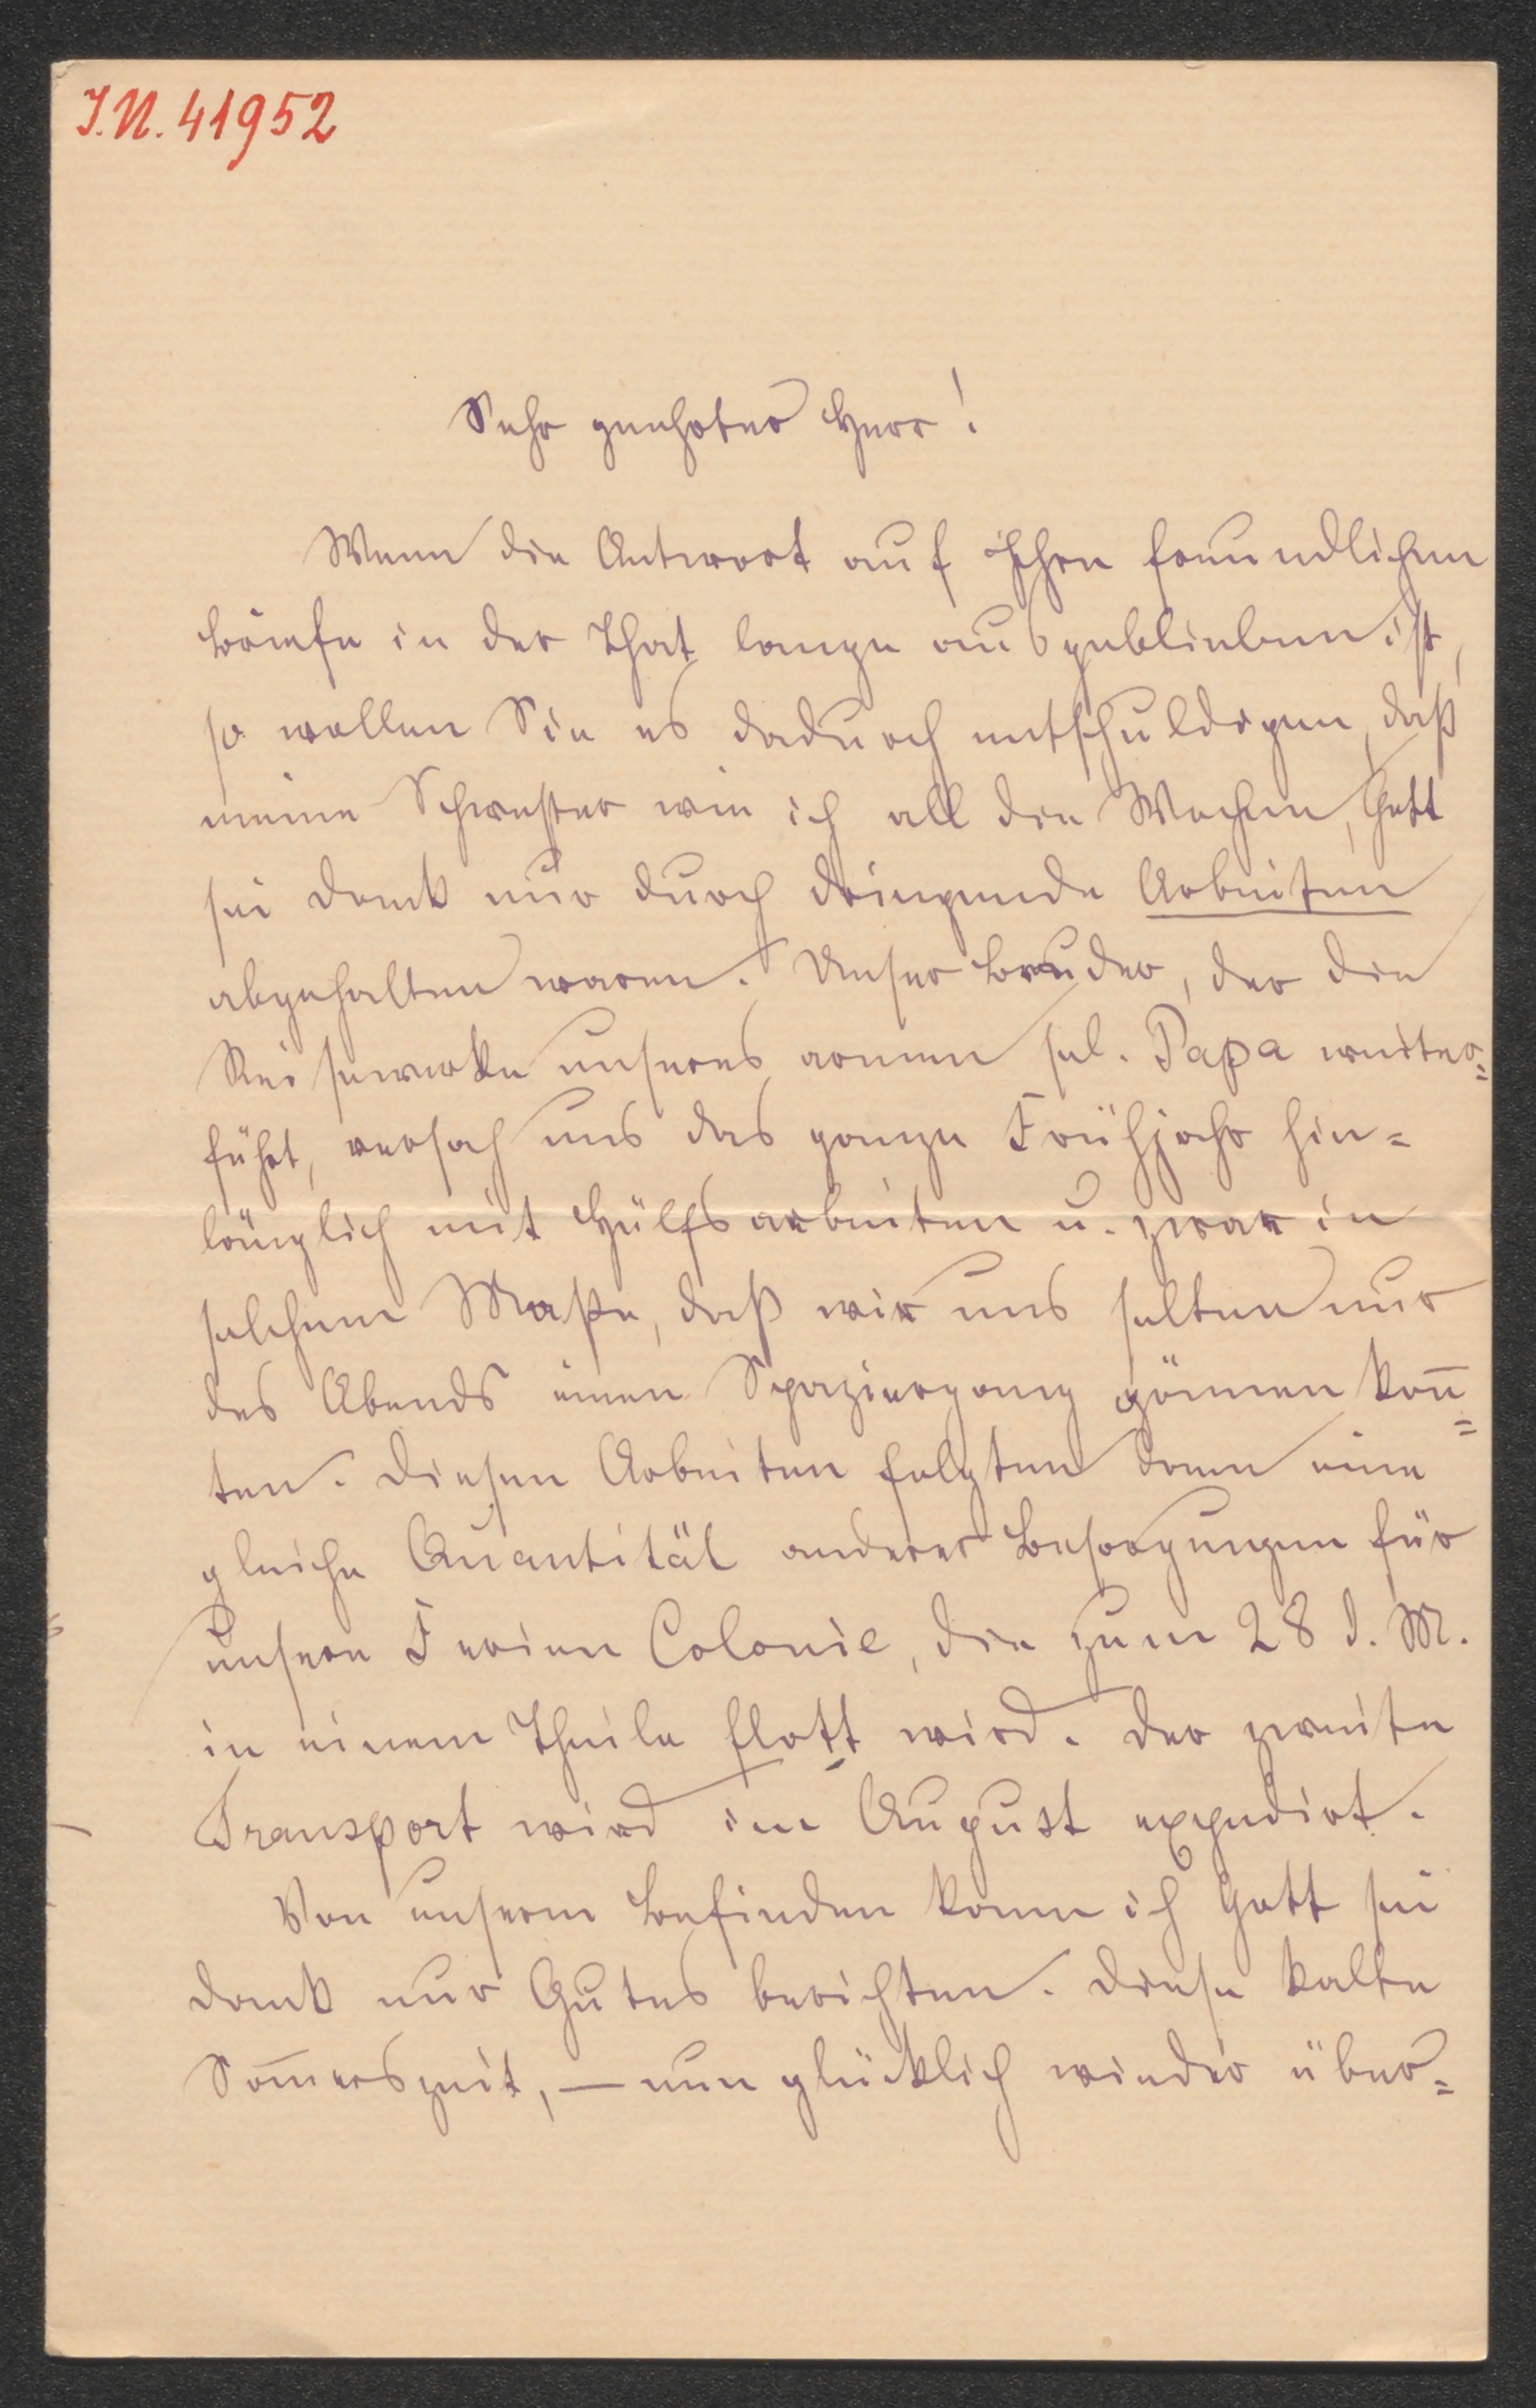 I.N. 41952
Sehr geehrter Herr!
Wenn die Antwort auf Ihre freundlichen
Briefe in der That lange ausgeblieben ist,
so wollen Sie es dadurch entschuldigen, daß
meine Schwester wie ich all die Wochen, Gott
sei Dank nur durch dringende Arbeiten
abgehalten waren. Unser Bruder, der die
Reisewerke unseres armen sel. Papa weiter=
führt, versah uns das ganze Frühjahr hin=
länglich mit Hülfsarbeiten u. zwar in
solchem Maße, daß wir uns selten nur
des Abends einen Spaziergang gönnen kon̄=
ten. Diesen Arbeiten folgten dann eine
gleiche Quantität anderer Besorgungen für
unsere Ferien Colonie, die zum 28 d. M.
in einem Theile flott wird. Der zweite
Transport wird im August expedirt.
Von unserm Befinden kann ich Gott sei
Dank nur Gutes berichten. Diese kalte
Som̄erszeit, – nun glücklich wieder über=